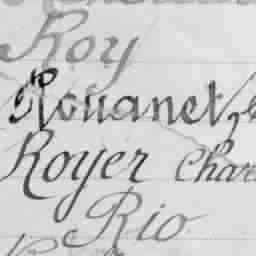 Roy
Rouanet,
Royer Char
Rio